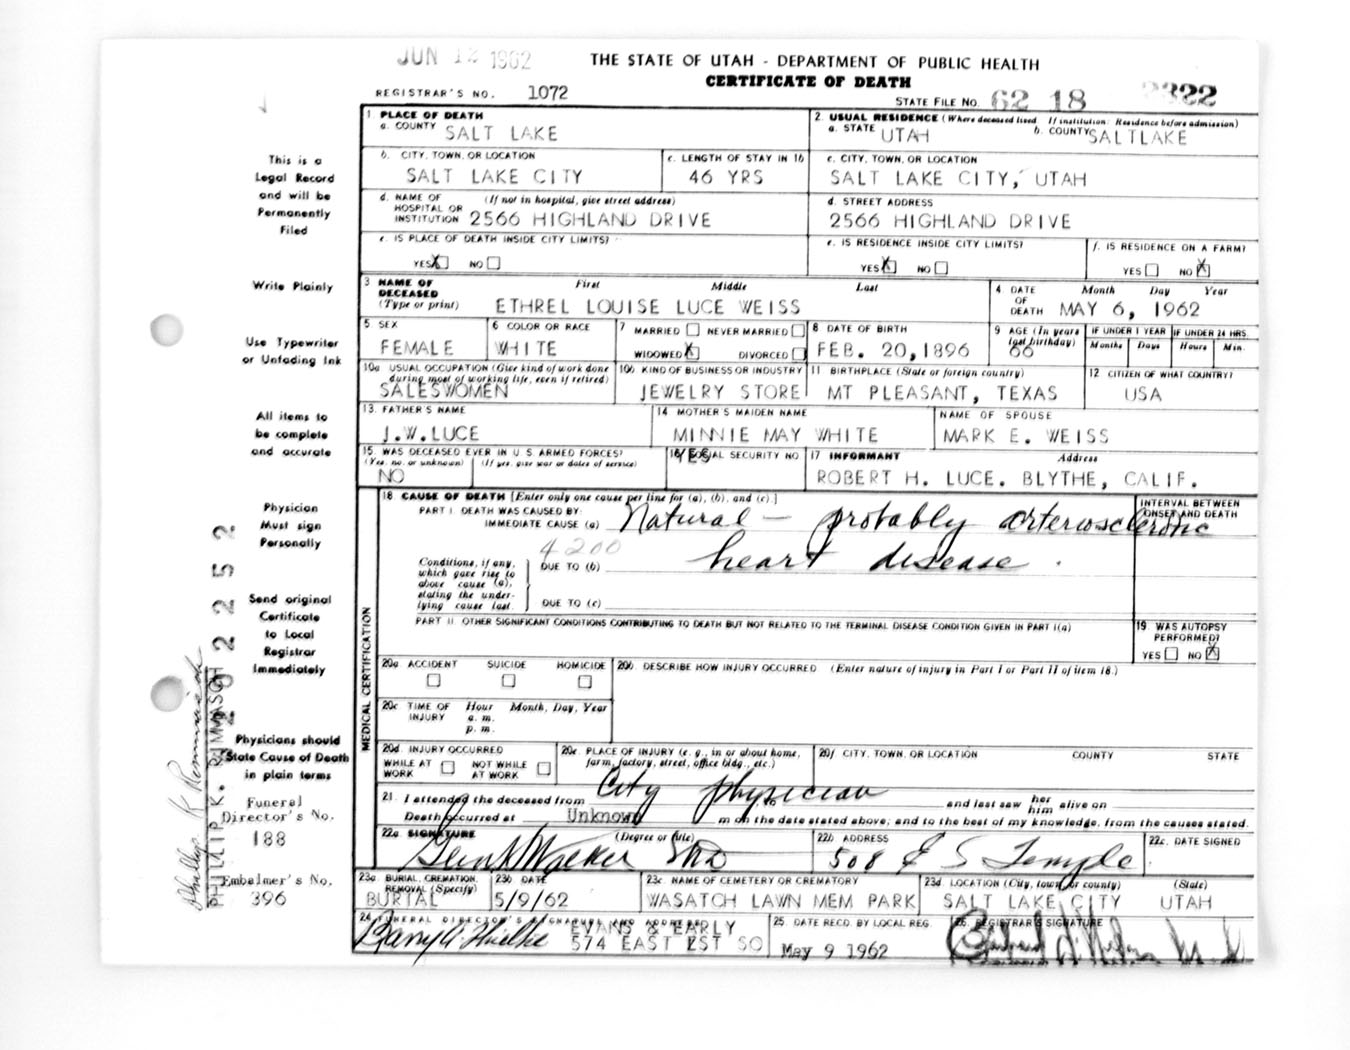 JUN 12 1962
THE STATE OF UTAH - DEPARTMENT OF PUBLIC HEALTH
CERTIFICATE OF DEATH
REGISTRAR'S NO. 1072
STATE FILE NO. 62 18 2322
This is a
Legal Record
and will be
Permanently
Filed
Write Plainly
Use Typewriter
or Unfading Ink
All items to
be complete
and accurate
Physician
Must sign
Personally
Send original
Certificate
to Local
Registrar
Immediately
Physicians should
State Cause of Death
in plain terms
Funeral
Director's No.
188
Embalmer's No.
396
PHILLIP K. RIMMASCH
1 PLACE OF DEATH
a. COUNTY SALT LAKE
2. USUAL RESIDENCE (Where deceased lived. If institution: Residence before admission)
a. STATE UTAH b. COUNTY SALTLAKE
b. CITY, TOWN, OR LOCATION
SALT LAKE CITY
c. LENGTH OF STAY IN 1b
46 YRS
c. CITY, TOWN, OR LOCATION
SALT LAKE CITY, UTAH
d. NAME OF HOSPITAL OR INSTITUTION (If not in hospital, give street address)
2566 HIGHLAND DRIVE
d. STREET ADDRESS
2566 HIGHLAND DRIVE
e. IS PLACE OF DEATH INSIDE CITY LIMITS?
YES X NO
e. IS RESIDENCE INSIDE CITY LIMITS?
YES X NO
f. IS RESIDENCE ON A FARM?
YES NO X
3 NAME OF DECEASED (Type or print) First Middle Last
ETHREL LOUISE LUCE WEISS
4. DATE OF DEATH Month Day Year
MAY 6, 1962
5. SEX
FEMALE
6 COLOR OR RACE
WHITE
7 MARRIED NEVER MARRIED
WIDOWED X DIVORCED
8 DATE OF BIRTH
FEB. 20,1896
9 AGE (In years last birthday)
66
IF UNDER 1 YEAR
Months Days
IF UNDER 24 HRS.
Hours Min.
10a USUAL OCCUPATION (Give kind of work done during most of working life, even if retired)
SALESWOMEN
10b KIND OF BUSINESS OR INDUSTRY
JEWELRY STORE
11 BIRTHPLACE (State or foreign country)
MT PLEASANT, TEXAS
12 CITIZEN OF WHAT COUNTRY?
USA
13. FATHER'S NAME
J.W.LUCE
14 MOTHER'S MAIDEN NAME
MINNIE MAY WHITE
NAME OF SPOUSE
MARK E. WEISS
15. WAS DECEASED EVER IN U.S. ARMED FORCES?
(Yes, no, or unknown) (If yes, give war or dates of service)
NO
16 SOCIAL SECURITY NO
YES
17 INFORMANT Address
ROBERT H. LUCE. BLYTHE, CALIF.
18. CAUSE OF DEATH [Enter only one cause per line for (a), (b), and (c).]
INTERVAL BETWEEN ONSET AND DEATH
PART I. DEATH WAS CAUSED BY:
IMMEDIATE CAUSE (a) Natural - probably arteriosclerotic
4200
Conditions, if any, which gave rise to above cause (a), stating the underlying cause last.
DUE TO (b) heart disease.
DUE TO (c)
PART II OTHER SIGNIFICANT CONDITIONS CONTRIBUTING TO DEATH BUT NOT RELATED TO THE TERMINAL DISEASE CONDITION GIVEN IN PART I(a)
19. WAS AUTOPSY PERFORMED?
YES NO X
MEDICAL CERTIFICATION
20a. ACCIDENT SUICIDE HOMICIDE
20b. DESCRIBE HOW INJURY OCCURRED (Enter nature of injury in Part I or Part II of item 18.)
20c TIME OF INJURY Hour Month, Day, Year
a. m.
p. m.
20d. INJURY OCCURRED
WHILE AT WORK NOT WHILE AT WORK
20e. PLACE OF INJURY (e. g., in or about home, farm, factory, street, office bldg., etc.)
20f CITY, TOWN, OR LOCATION COUNTY STATE
City physician
21. I attended the deceased from , to and last saw her him alive on
Death occurred at Unknown m on the date stated above; and to the best of my knowledge, from the causes stated.
22a SIGNATURE (Degree or title)
22b ADDRESS
508 E S Temple
22c. DATE SIGNED
23a BURIAL, CREMATION, REMOVAL (Specify)
BURIAL
23b DATE
5/9/62
23c NAME OF CEMETERY OR CREMATORY
WASATCH LAWN MEM PARK
23d. LOCATION (City, town, or county) (State)
SALT LAKE CITY UTAH
24 FUNERAL DIRECTOR'S SIGNATURE AND ADDRESS
EVANS & EARLY
574 EAST 1ST SO
25. DATE RECD. BY LOCAL REG.
May 9 1962
26. REGISTRAR'S SIGNATURE